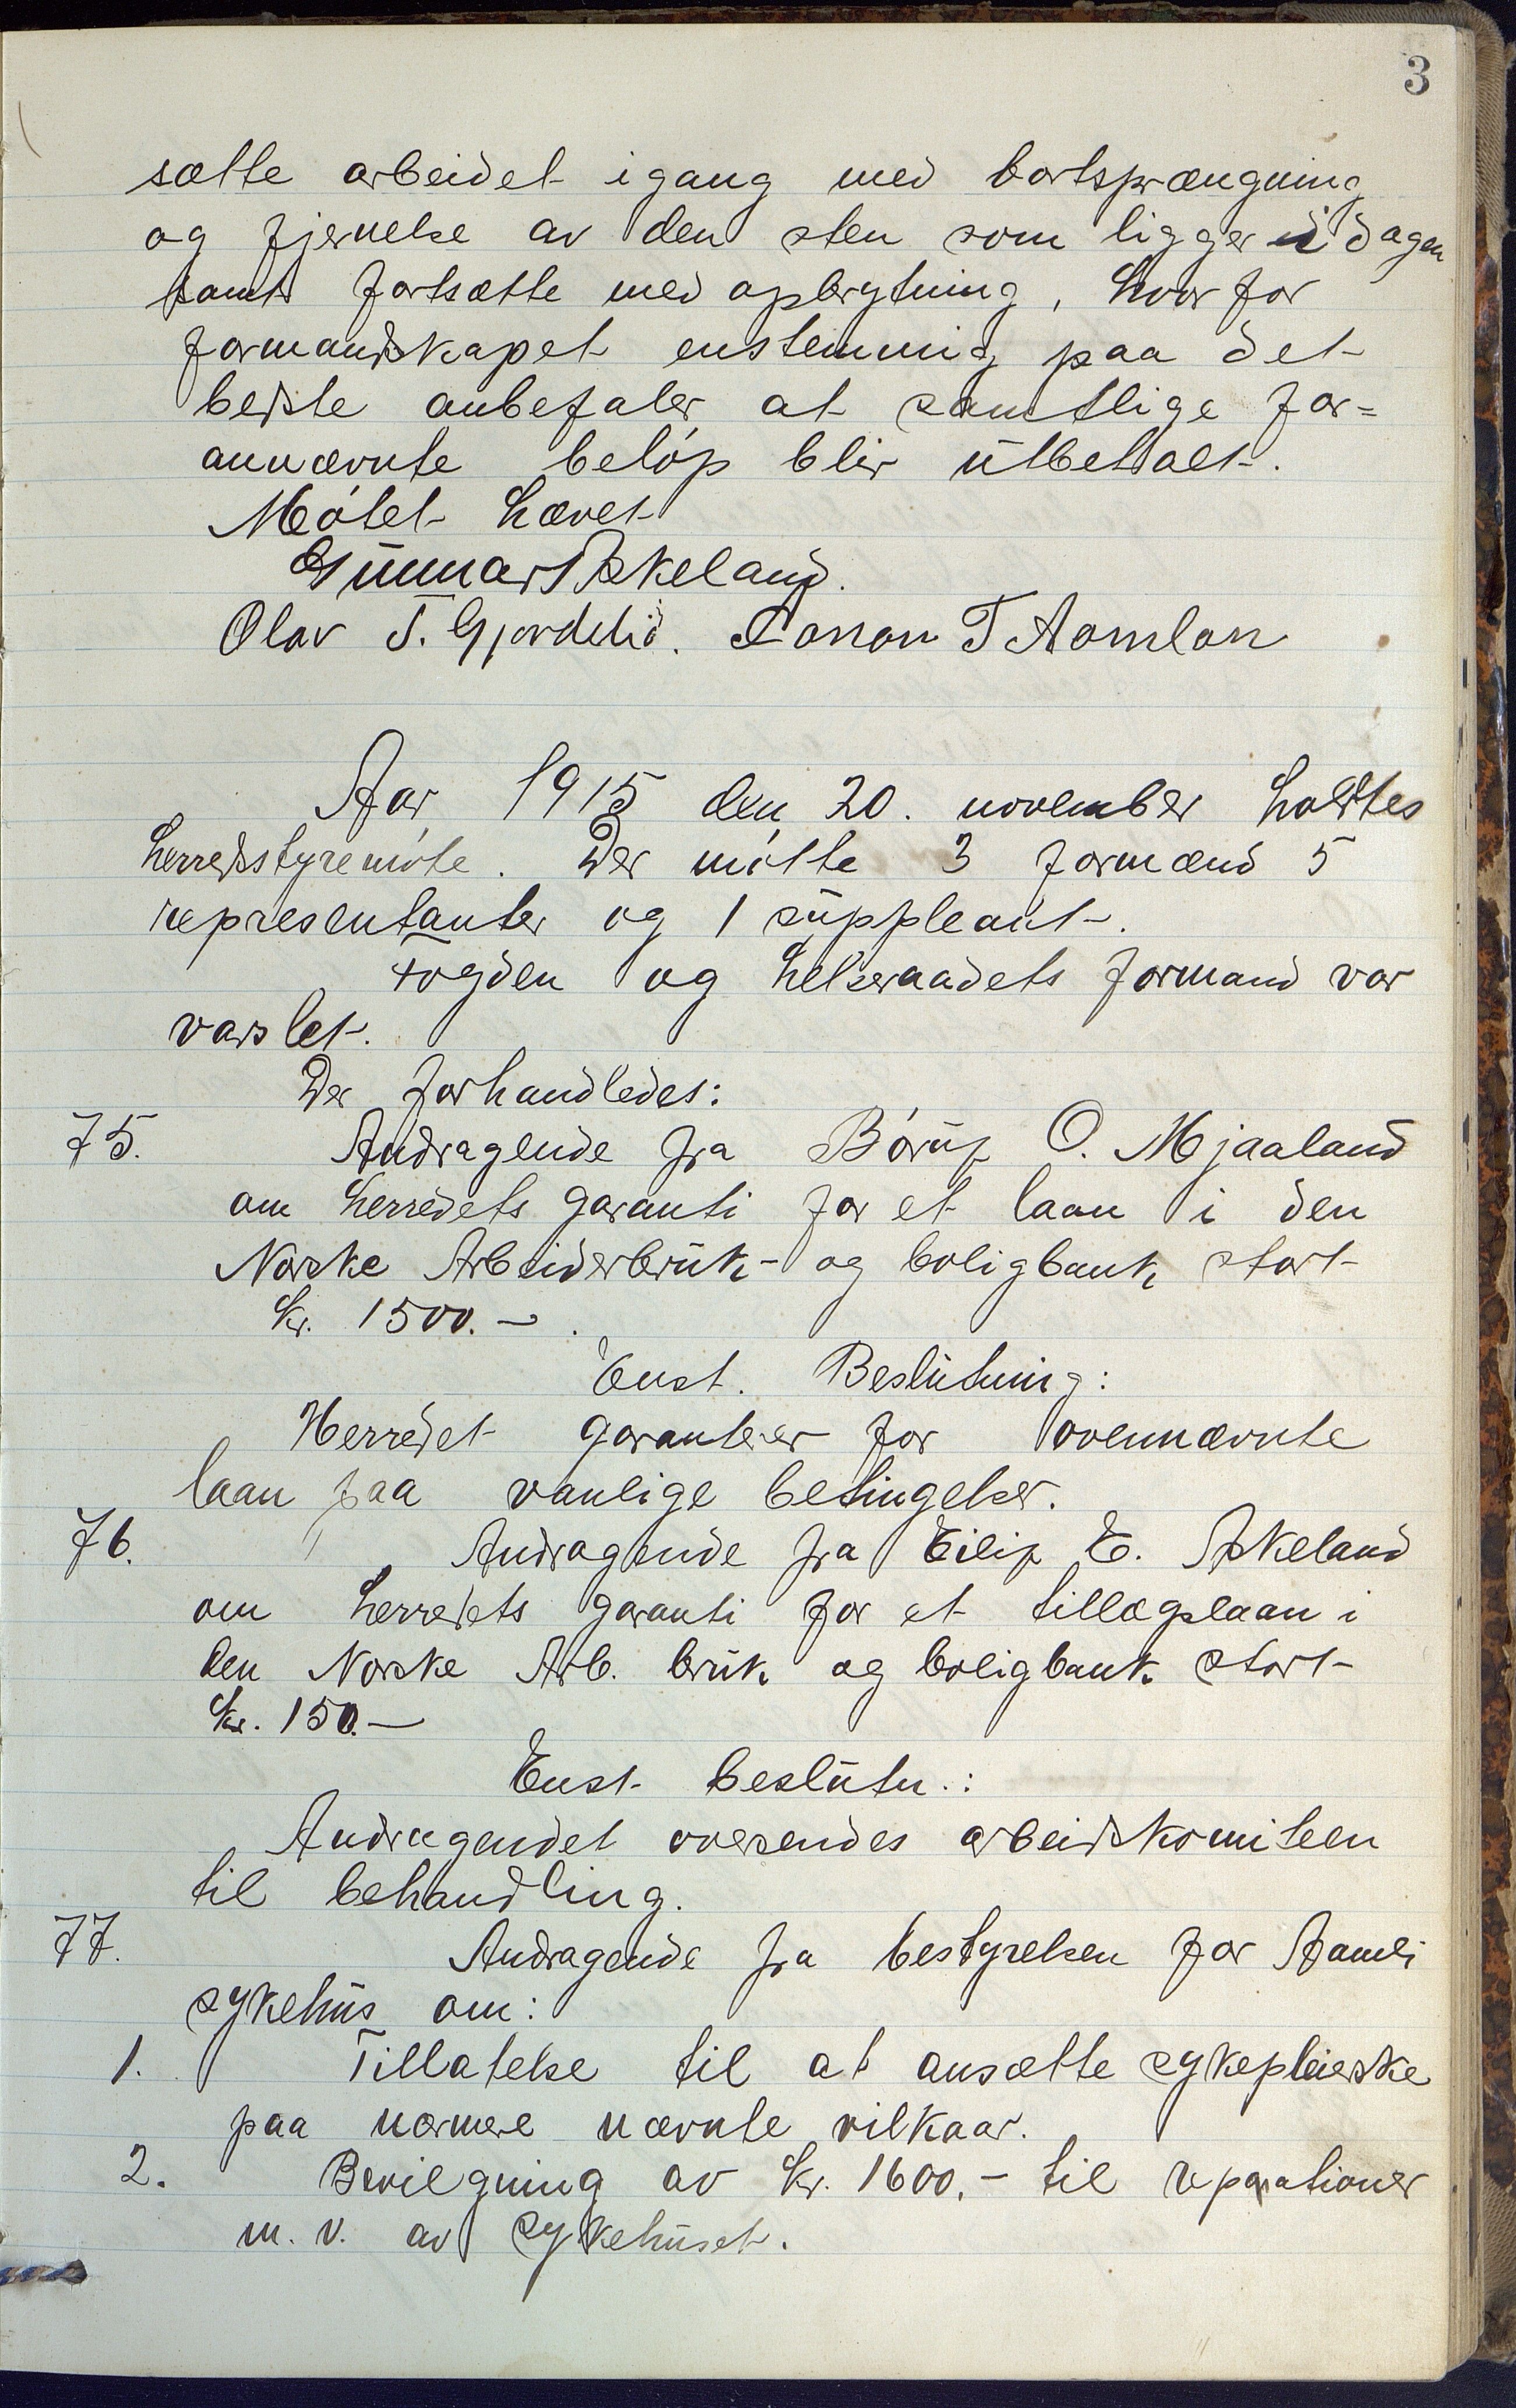 3
sætte arbeidet igang med bortsprængning
og fjernelse av den sten som ligger i dagen
samt fortsætte med oplrytning, hvorfor
formandskapet enstemmig paa det
beste anbefaler at samtlige for=
annævnte beløp blir utbetalt.
Møtet hævet
Gunnar Askeland.
Olav T. Gjerdelid. Aanon T Aamlan
Aar 1915 den 20. november holdtes
herredsstyremøte. Der møtte 3 formænd 5
representanter og 1 suppleant.
Fogden og helseraadets formand var
varslet.
Der forhandledes:
75. Andragende fra Børup O. Mjaaland
om herredets garanti for et laan i den
Norske Arbeiderbruk- og boligbank stort
kr. 1500.-
Enst. Beslutning:
Herredet garanterer for ovennævnte
laan paa vanlige betingelser.
76. Andragende fra Eilif E. Askeland
om herredets garanti for et tillægslaan i
den Norske Arb. bruk og boligbank stort
kr. 150.-
Enst. beslutn.:
Andragendet oversendes arbeidskomiteen
til behandling.
77. Andragende fra bestyrelsen for Aamli
sykehus om:
1. Tillatelse til at ansætte sykepleierske
paa nærmere nævnte vilkaar.
2. Bevilgning av kr. 1600.- til reparationer
m. v. av sykehuset.